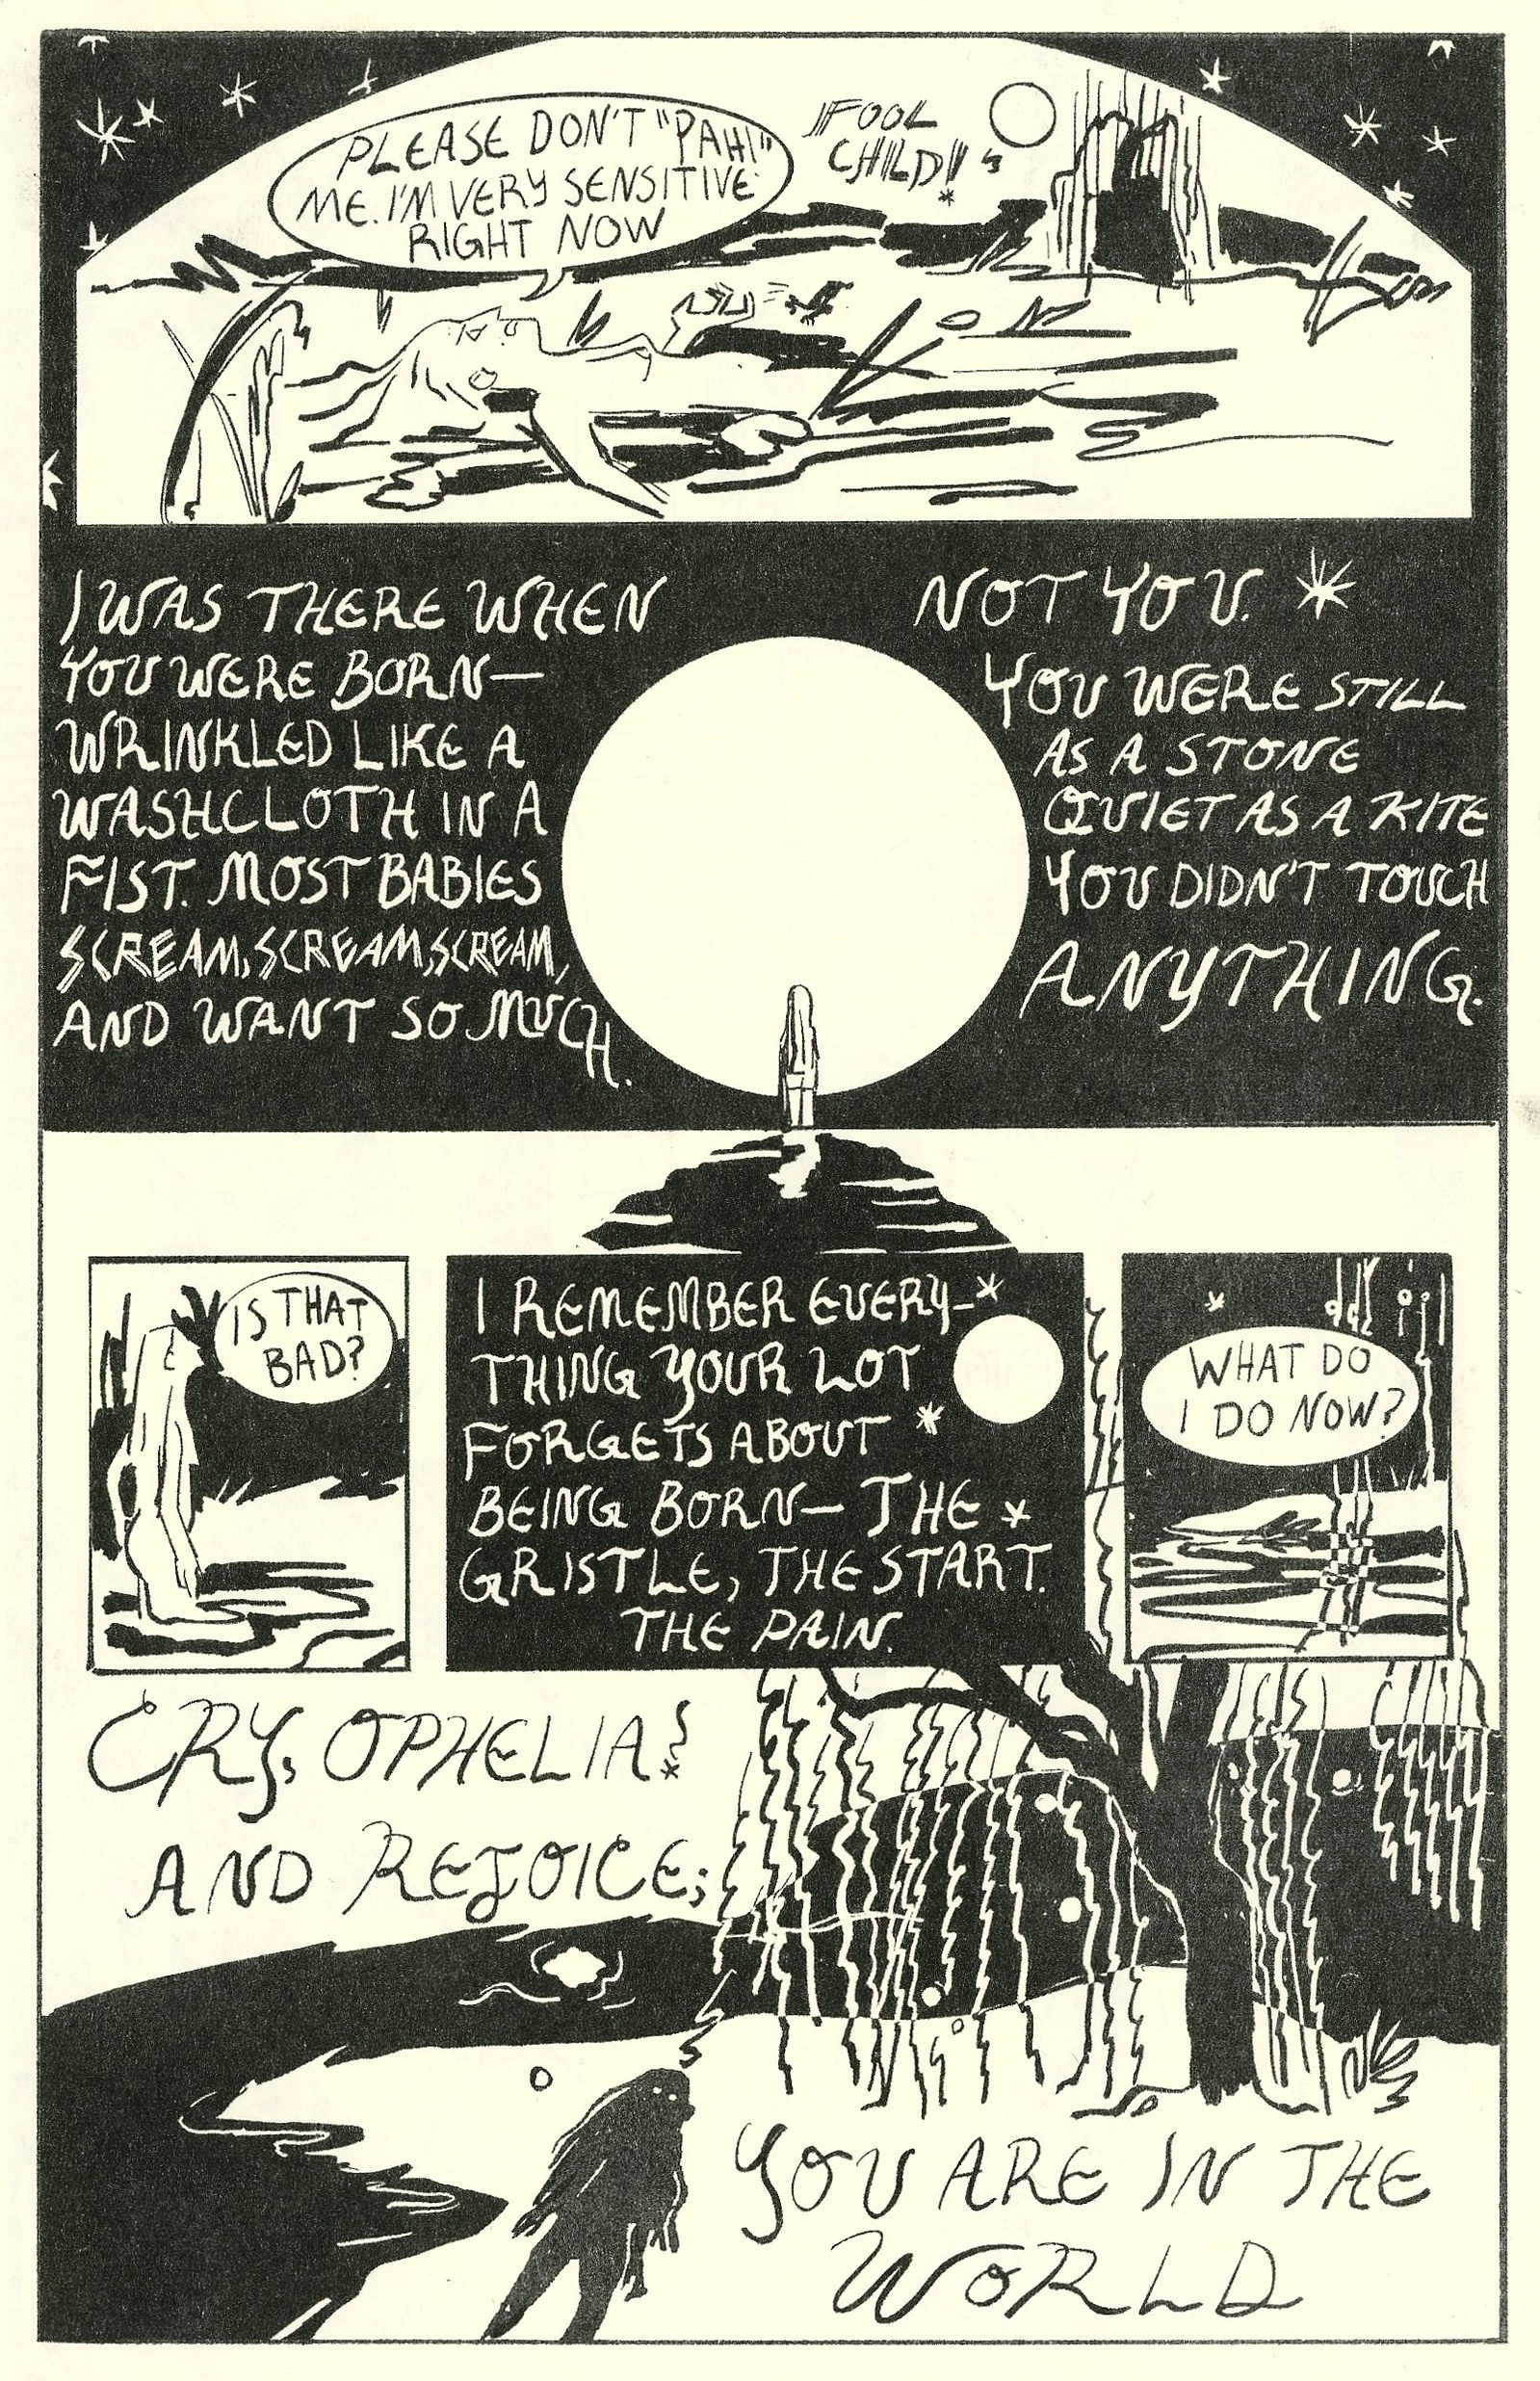 PLEASE DON'T "PAH!"
ME. I'M VERY SENSITIVE
RIGHT NOW
FOOL
CHILD!
I WAS THERE WHEN
YOU WERE BORN—
WRINKLED LIKE A
WASHCLOTH IN A
FIST. MOST BABIES
SCREAM, SCREAM, SCREAM,
AND WANT SO MUCH.
NOT YOU.
YOU WERE STILL
AS A STONE
QUIET AS A KITE
YOU DIDN'T TOUCH
ANYTHING.
IS THAT
BAD?
I REMEMBER EVERY-
THING YOUR LOT
FORGETS ABOUT
BEING BORN— THE
GRISTLE, THE START.
THE PAIN.
WHAT DO
I DO NOW?
CRY, OPHELIA!
AND REJOICE;
YOU ARE IN THE
WORLD